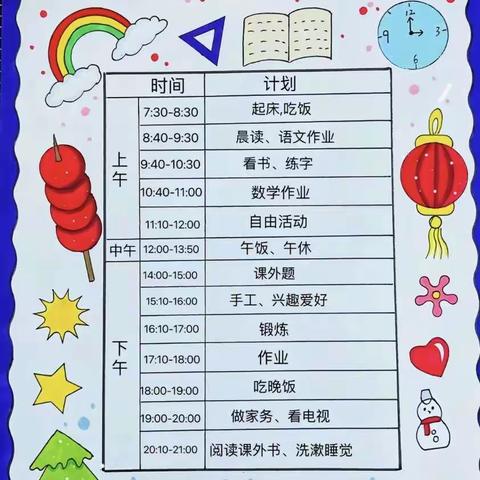 12
9 3
6
时间 计划
上午
7:30-8:30 起床,吃饭
8:40-9:30 晨读、语文作业
9:40-10:30 看书、练字
10:40-11:00 数学作业
11:10-12:00 自由活动
中午 12:00-13:50 午饭、午休
下午
14:00-15:00 课外题
15:10-16:00 手工、兴趣爱好
16:10-17:00 锻炼
17:10-18:00 作业
18:00-19:00 吃晚饭
19:00-20:00 做家务、看电视
20:10-21:00 阅读课外书、洗漱睡觉